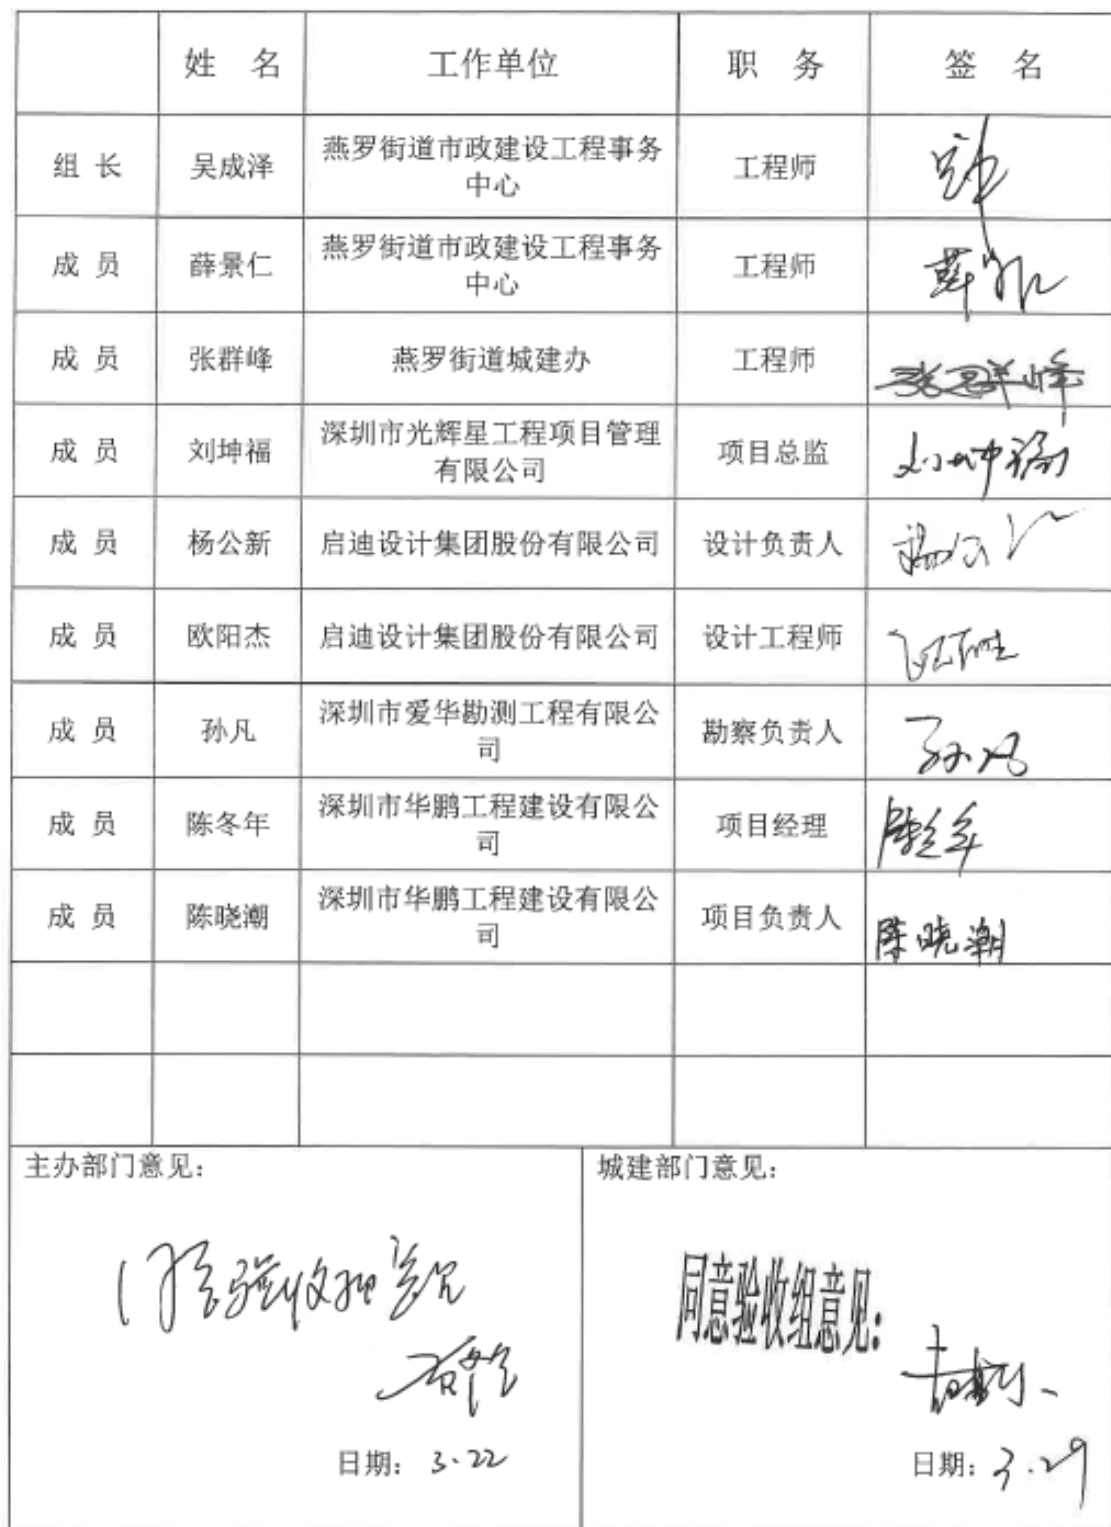 姓 名 工作单位 职 务 签 名
组 长 吴成泽 燕罗街道市政建设工程事务中心 工程师
成 员 薛景仁 燕罗街道市政建设工程事务中心 工程师 薛景仁
成 员 张群峰 燕罗街道城建办 工程师 张群峰
成 员 刘坤福 深圳市光辉星工程项目管理有限公司 项目总监 刘坤福
成 员 杨公新 启迪设计集团股份有限公司 设计负责人 杨公新
成 员 欧阳杰 启迪设计集团股份有限公司 设计工程师
成 员 孙凡 深圳市爱华勘测工程有限公司 勘察负责人 孙凡
成 员 陈冬年 深圳市华鹏工程建设有限公司 项目经理 陈冬年
成 员 陈晓潮 深圳市华鹏工程建设有限公司 项目负责人 陈晓潮
主办部门意见：
同意验收组意见
日期：3.22
城建部门意见：
同意验收组意见：
日期：3.29